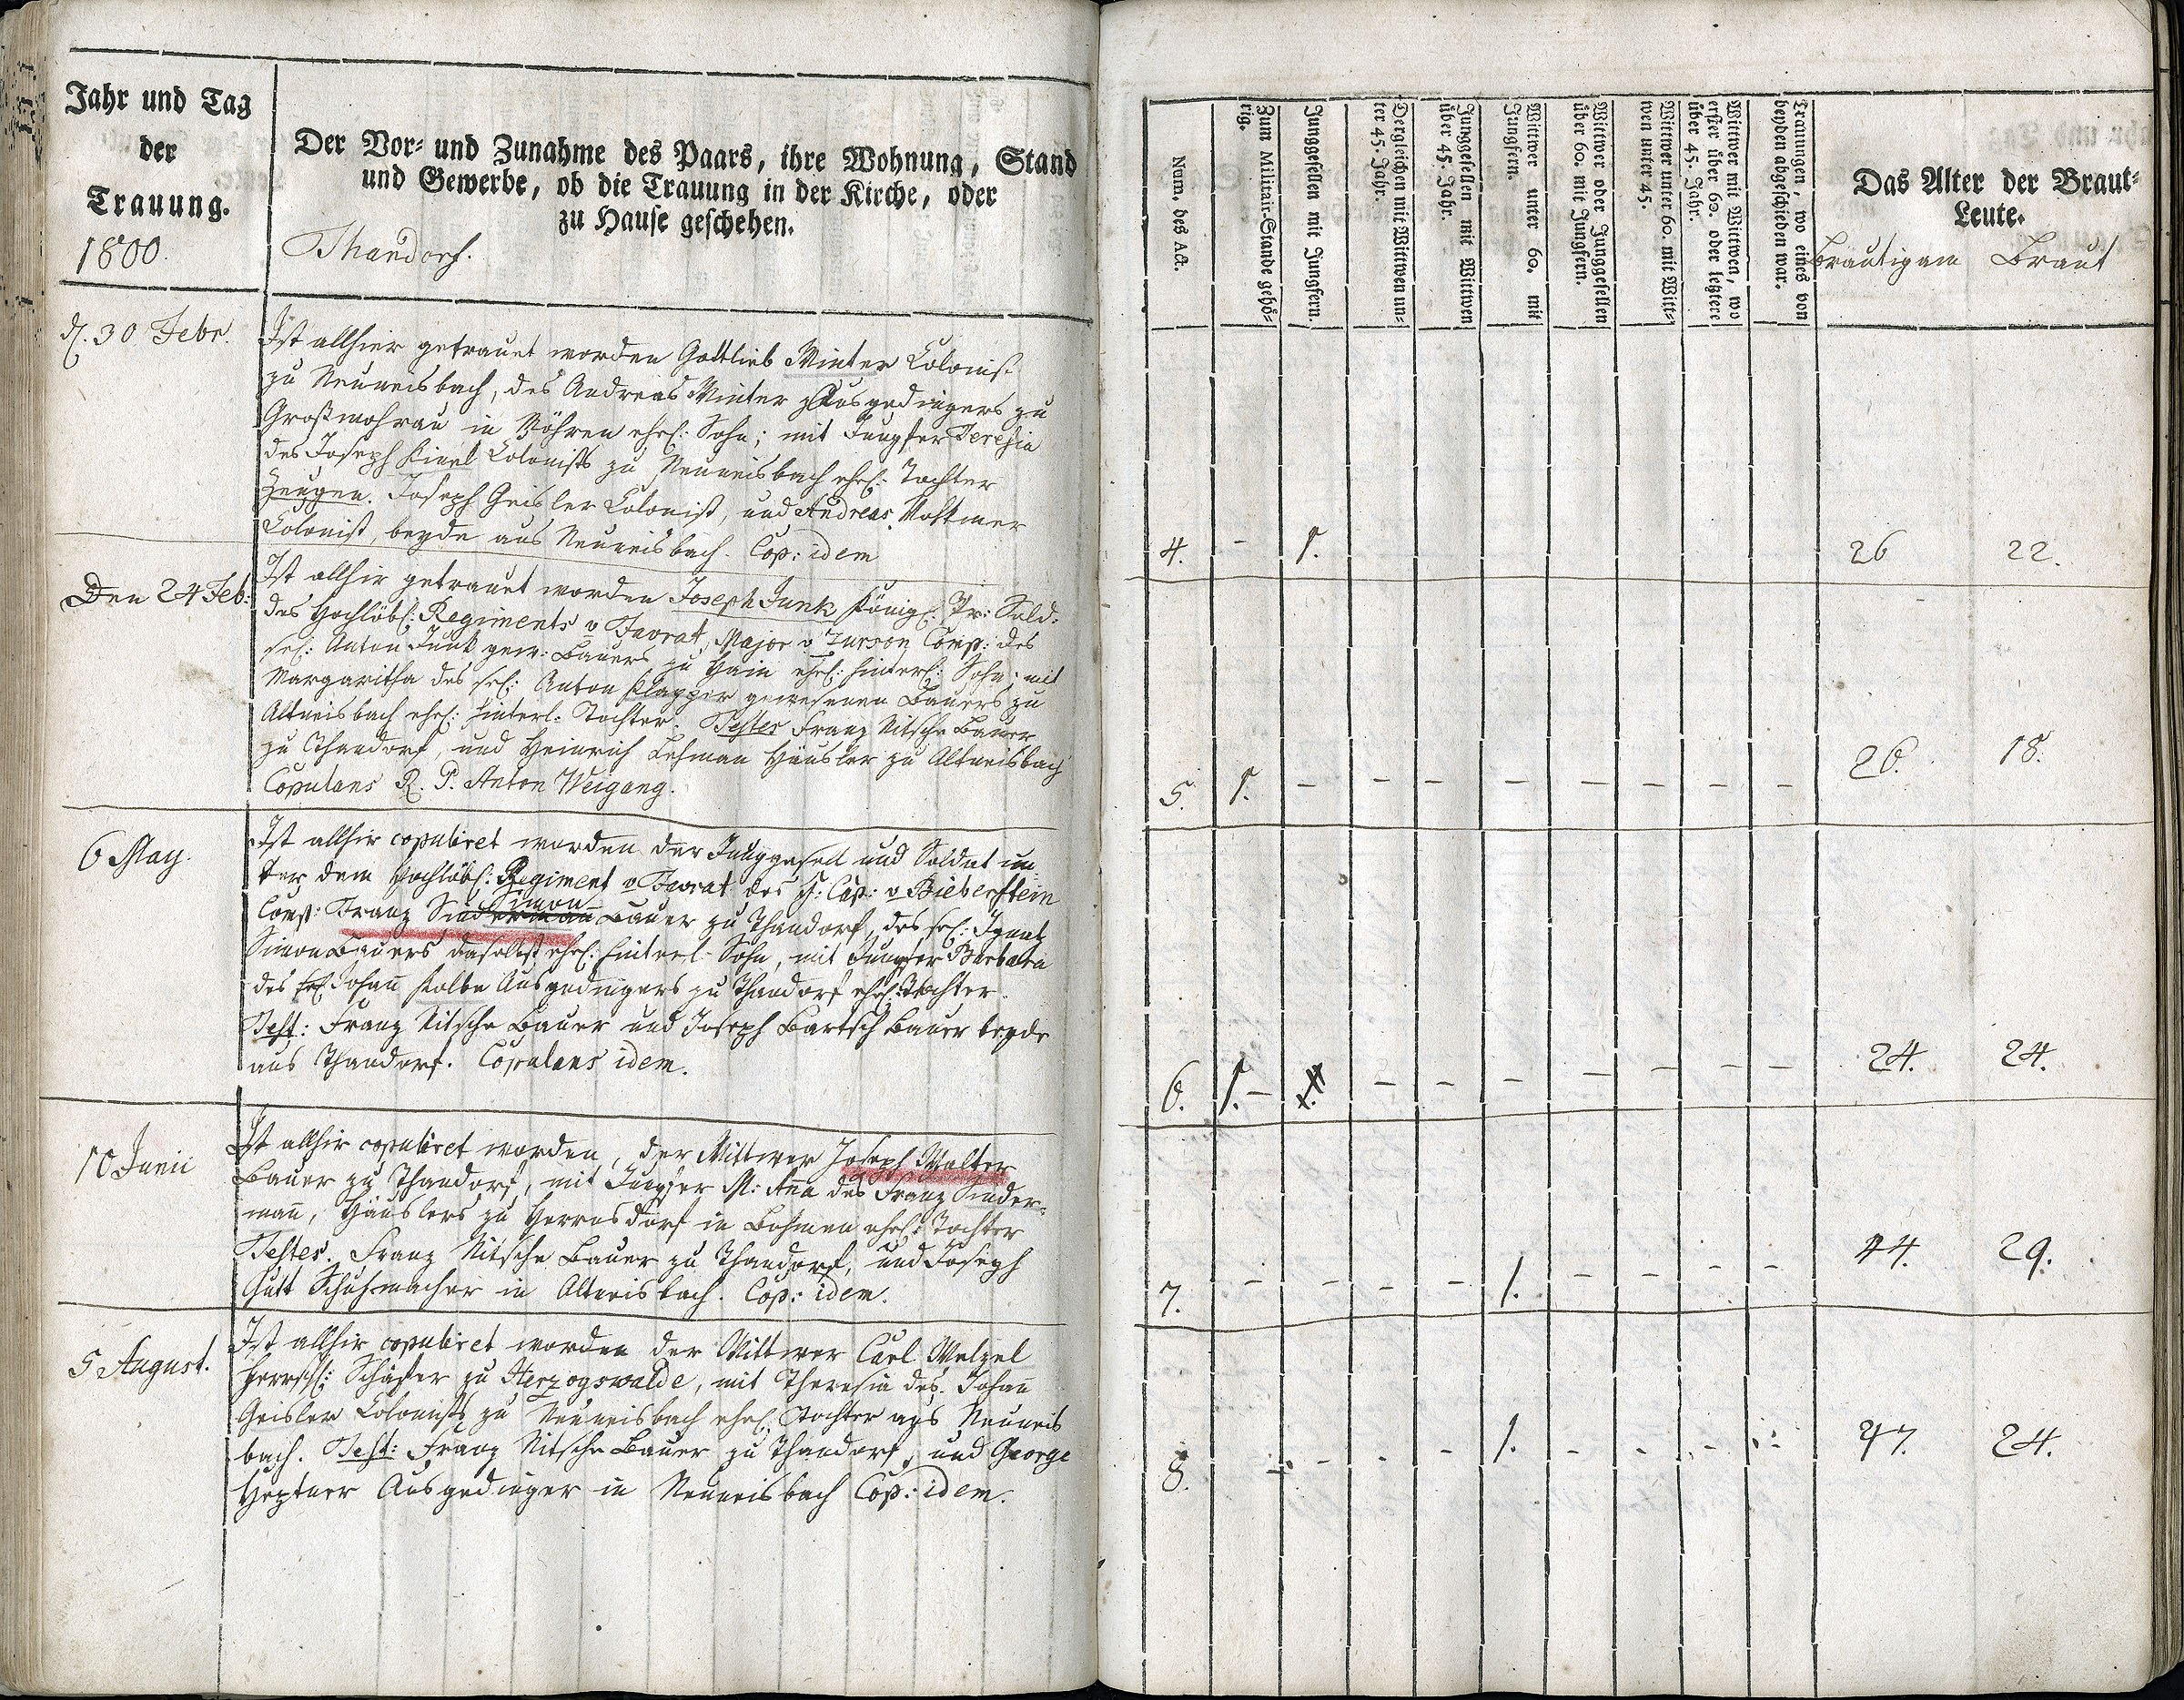 Jahr und Tag
der
Trauung.
1800.
Der Vor- und Zunahme des Paars, ihre Wohnung, Stand
und Gewerbe, ob die Trauung in der Kirche, oder
zu Hause geschehen.
Thandorf.
d. 30 Febr.
Ist allhier getrauet worden Gottlieb Winter Colonist
zu Neuneisbach, des Andreas Winter Ausgedingers zu
Großmohrau in Möhren ehel: Sohn; mit Jungfer Teresia
des Joseph Kinel Colonists zu Neuneisbach ehel: Tochter
Zeugen. Joseph Geisler Colonist, und Andreas Volkmer
Colonist, beyde aus Neuneisbach. Cop: idem
Den 24 Feb:
Ist allhir getrauet worden Joseph Junk Königl: Pr: Sold:
des Hochlöbl: Regiments v Favrat, Major v Zurson Comp: des
sel: Anton Junk gew: Bauers zu Hain ehel: hinterl: Sohn; mit
Margaritha des sel: Anton Klapper gewesenen Bauers zu
Altneisbach ehel: hinterl: Tochter. Testes Franz Nitsche Bauer
zu Thandorf, und Heinrich Lehman Häusler zu Altneisbach
Copulans R. P. Anton Weigang.
6 May.
Ist allhir copuliret worden der Junggesell und Soldat un-
ter dem Hochlöbl: Regiment v Favrat des H: Cap: v Bieberstein
Comp: Franz Sindermañ Simon Bauer zu Thandorf, des sel: Ignatz
Simon Bauers daselbst ehel: hinterl. Sohn, mit Jungfer Barbara
des sel Johañ Kolbe Ausgedingers zu Thandorf ehel: Tochter.
Test: Franz Nitsche Bauer und Joseph Bartsch Bauer beyde
aus Thandorf. Copulans idem.
10 Junii
Ist allhir copuliret worden, der Wittwer Joseph Walter
Bauer zu Thandorf, mit Jungfer M: Aña des Franz Sinder-
mañ, Häuslers zu Herrnsdorf in Bohmen ehel: Tochter
Testes. Franz Nitsche Bauer zu Thandorf, und Joseph
Gutt Schuhmacher in Altneisbach. Cop: idem.
5 August.
Ist allhir copuliret worden der Wittwer Carl Welzel
herrschl: Schäfer zu Herzogswalde, mit Theresia des Johañ
Geisler Colonists zu Neuneisbach ehel. Tochter aus Neuneis
bach. Test: Franz Nitsche Bauer zu Thandorf, und George
Heptner Ausgedinger in Neuneisbach Cop: idem.
Num. des Act.
Zum Militair-Stande gehö-
rig.
Junggesellen mit Jungfern.
Dergleichen mit Wittwen un-
ter 45. Jahr.
Junggesellen mit Wittwen
über 45. Jahr.
Wittwer unter 60. mit
Jungfern.
Wittwer oder Junggesellen
über 60. mit Jungfern.
Wittwer unter 60. mit Witt-
wen unter 45.
Wittwer mit Wittwen, wo
erster über 60. oder letztere
über 45. Jahr.
Trauungen, wo eines von
beyden abgeschieden war.
Das Alter der Braut-
Leute.
Bräutigam Braut
4. - 1. 26 22.
5. 1. - - - - - - - - 26. 18.
6. 1. - - - - - - - - 24. 24.
7. - - - - 1. - - - - 44. 29.
8. - - - - 1. - - - - 47. 24.